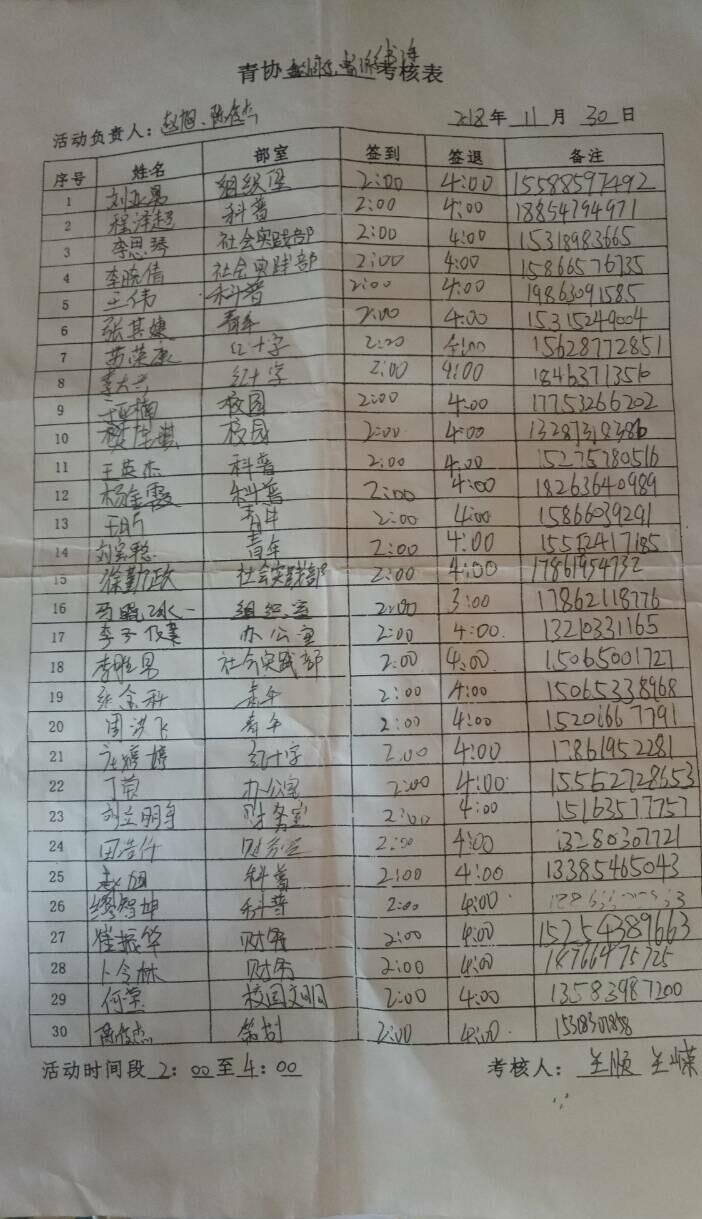 青协 考核表
活动负责人：赵旭、陈俊杰 2018年 11月 30日
序号 姓名 部室 签到 签退 备注
1 刘亚男 组织室 2:00 4:00 15588597492
2 程泽超 科普 2:00 4:00 18854794971
3 李思琴 社会实践部 2:00 4:00 15318983665
4 李晓倩 社会实践部 2:00 4:00 15866576735
5 王伟 科普 2:00 4:00 19863091585
6 张其婕 青年 2:00 4:00 15315249004
7 苏荣康 红十字 2:20 4:00 15628772851
8 红十字 2:00 4:00 18463713510
9 于亚楠 校园 2:00 4:00 17753266202
10 校园 2:00 4:00
11 王英杰 科普 2:00 4:00 15275780516
12 杨金霞 科普 2:00 4:00 18263640989
13 于昕 青年 2:00 4:00 15866039291
14 青年 2:00 4:00 15562417185
15 徐勤政 社会实践部 2:00 4:00 17861954732
16 组织室 2:00 3:00 17862118776
17 办公室 2:00 4:00 13210331165
18 李胜男 社会实践部 2:00 4:00 15065001727
19 张金科 青年 2:00 4:00 15065338968
20 周洪飞 青年 2:00 4:00 15201667791
21 庄婷婷 红十字 2:00 4:00 17861952281
22 丁蓉 办公室 2:00 4:00 15552728653
23 财务室 2:00 4:00 15163577757
24 财务室 2:00 4:00 13280307721
25 赵旭 科普 2:00 4:00 13385465043
26 缪智坤 科普 2:00 4:00
27 崔振华 财务 2:00 4:00 15254389663
28 卜令林 财务 2:00 4:00 18766475725
29 何莹 校园文明 2:00 4:00 13583987200
30 陈俊杰 策划 2:00 4:00
活动时间段 2：00至4：00 考核人： 王顺 王嵘